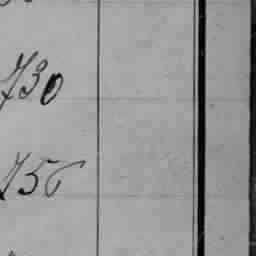 730
756